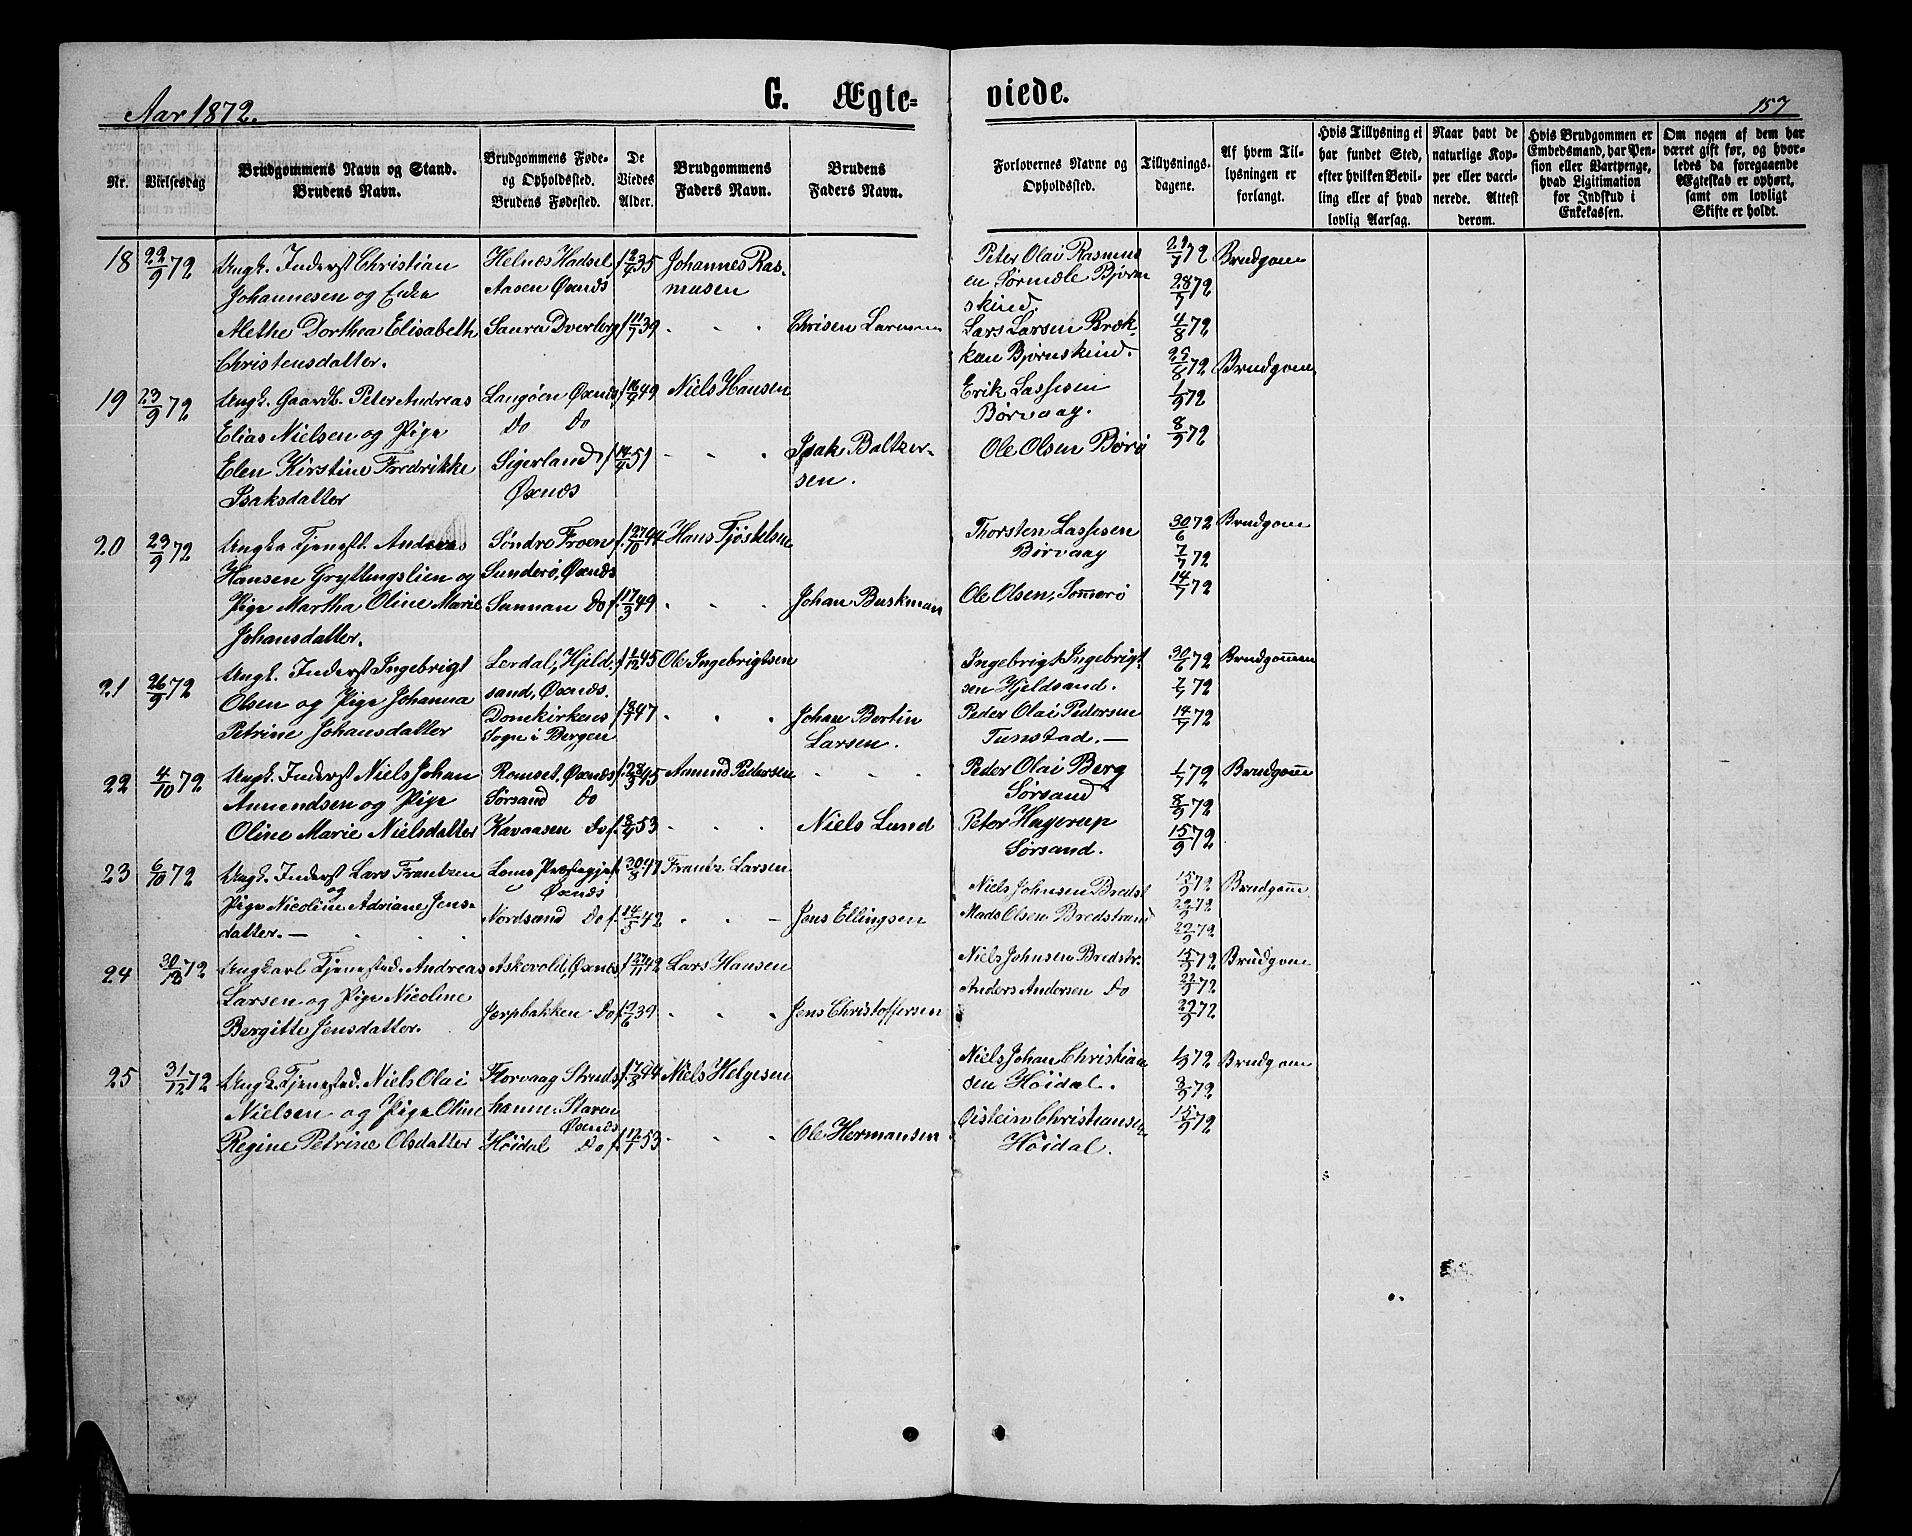 Aar 1872.
G. Ægte-
viede.
157
Nr.
Vielsesdag
Brudgommens Navn og Stand.
Brudens Navn.
Brudgommens Føde-
og Opholdssted.
Brudens Fødested.
De
Viedes
Alder.
Brudgommens
Faders Navn.
Brudens
Faders Navn.
Forlovernes Navne og
Opholdssted.
Tillysnings-
dagene.
Af hvem Til-
lysningen er
forlangt.
Hvis Tillysning ei
har fundet Sted,
efter hvilken Bevil-
ling eller af hvad
lovlig Aarsag.
Naar havt de
naturlige Kop-
per eller vacci-
nerede. Attest
derom.
Hvis Brudgommen er
Embedsmand, har Pen-
sion eller Vartpenge,
hvad Ligitimation
for Indskud i
Enkekassen.
Om nogen af dem har
været gift før, og hvor-
ledes da foregaaende
Ægtestad er ophørt,
samt om lovligt
Skifte er holdt.
18 22/9 72 Ungk. Inderst Christian Helnæs Hadsel f. 35 Johannes Ras-
Johannesen og Enke Aasen Øxnæs musen
Alethe Dorthea Elisabeth Saura Dverberg f. 11/7 39 " " " Chrisen Larsen
Christensdatter.
Peter Olai Rasmus 21/7 72 Brudgom
en Sørmæle Bjørn 28/7 72
skind.
Lars Larsen Bræk- 4/8 72
kan Bjørnskind.
19 23/9 72 Ungk. Gaardb. Peter Andreas Langøen Øxnæs f. 16/9 49 Niels Hansen
Elias Nielsen og Pige Do Do
Elen Kirstine Fredrikke Sigerland f. 14/4 51 " " " Isak Baltzer-
Isaksdatter Øxnæs sen.
25/8 72 Brudgom
Erik Lassesen 1/9 72
Børvaag.
Ole Olsen Børø 8/9 72
20 23/9 72 Ungka Tjenest. Andreas Søndre Froen f. 27/10 44 Hans Tjøstelsen
Hansen Gryttingslien og Sunderø, Øxnæs
Pige Martha Oline Marie Sannan Do f. 17/3 49 " " " Johan Buskman
Johansdatter.
Thorsten Lassesen 30/6 72 Brudgom
Børvaag 7/7 72
Ole Olsen, Sommerø 14/7 72
21 26/9 72 Ungk. Inderst Ingebrigt Lerdal, Hjeld- f. 1/12 45 Ole Ingebrigtsen
Olsen og Pige Johanna sand, Øxnæs.
Petrine Johansdatter Domkirkens f. 18/7 47 " " " Johan Bertin
Sogn i Bergen Larsen.
Ingebrigt Ingebrigt- 30/6 72 Brudgommen
sen Hjeldsand. 7/7 72
Peder Olai Pedersen 14/7 72
Tunstad. —
22 4/10 72 Ungk. Inderst Niels Johan Romset, Øxnæs f. 28/3 45 Amund Pedersen " " "
Amundsen og Pige Sørsand Do
Oline Marie Nielsdatter Kavaasen Do f. 53 " " " Niels Lund
Peder Olai Berg 72 Brudgom
Sørsand 8/9 72
Peter Hagerup 15/9 72
Sørsand.
23 6/10 72 Ungk. Inderst Lars Frantzen Loms Præstegjæ f. 30/8 47 Frantz Larsen
og Øxnæs
Pige Nicoline Adriane Jens- Nordsand Do f. 14/3 42 " " " Jens Ellingsen
datter. —
Niels Johnsen Bredst. 15/9 72 Brudgom
Mads Olsen Bredstrand 22/9 72
29/9 72
24 30/12 72 Ungkarl Tjenested. Andreas Askevold, Øxnes f. 42 Lars Hansen
Larsen og Pige Nicoline
Bergitte Jensdatter. Jærpbakken Do f. 39 " " " Jens Christoffersen
Niels Johnsen Bredstr. 15/9 72 Brudgom
Anders Andersen Do 22/9 72
29/9 72
25 31/12 72 Ungk. Tjenested. Niels Olai Florvaag Struds- f. 17/8 44 Niels Helgesen
Nielsen og Pige Oline hamn. Staven
Øxnæs
Regine Petrine Olsdatter Høidal Do f. 12/7 53 " " " Ole Hermansen
Niels Johan Christian 1/9 72 Brudgom
sen Høidal. 8/9 72
Øistein Christiansen 15/9 72
Høidal.